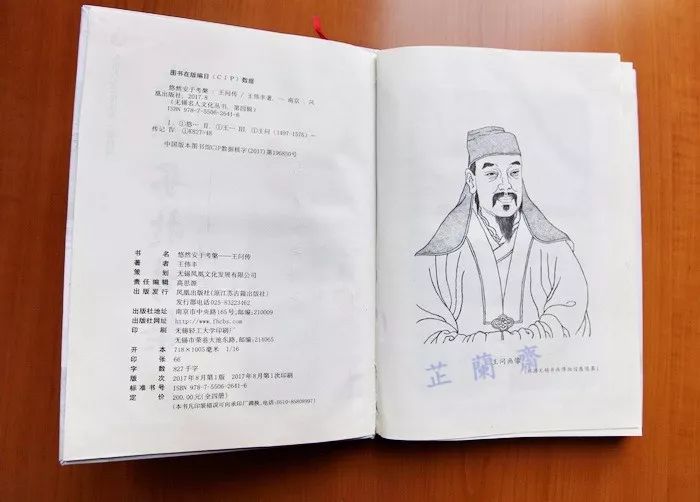 图书在版编目(CIP)数据
悠然安于考槃：王问传 / 王伟丰著. — 南京：凤
凰出版社，2017.8
(无锡名人文化丛书．第四辑)
ISBN 978-7-5506-2641-6
Ⅰ.①悠… Ⅱ.①王… Ⅲ.①王问（1497-1576）—
传记 Ⅳ.①K827=48
中国版本图书馆CIP数据核字(2017)第196850号
书名 悠然安于考槃——王问传
著者 王伟丰
策划 无锡凤凰文化发展有限公司
责任编辑 高思源
出版发行 凤凰出版社(原江苏古籍出版社)
发行部电话025-83223462
出版社地址 南京市中央路165号,邮编:210009
出版社网址 http://www.fhcbs.com
印刷 无锡轻工大学印刷厂
无锡市荣县大池东路,邮编:214065
开本 718×1005毫米 1/16
印张 66
字数 827千字
版次 2017年8月第1版 2017年8月第1次印刷
标准书号 ISBN 978-7-5506-2641-6
定价 200.00元(全四册)
(本书凡印装错误可向承印厂调换,电话:0510-85808997)
王问画像
芷蘭齋